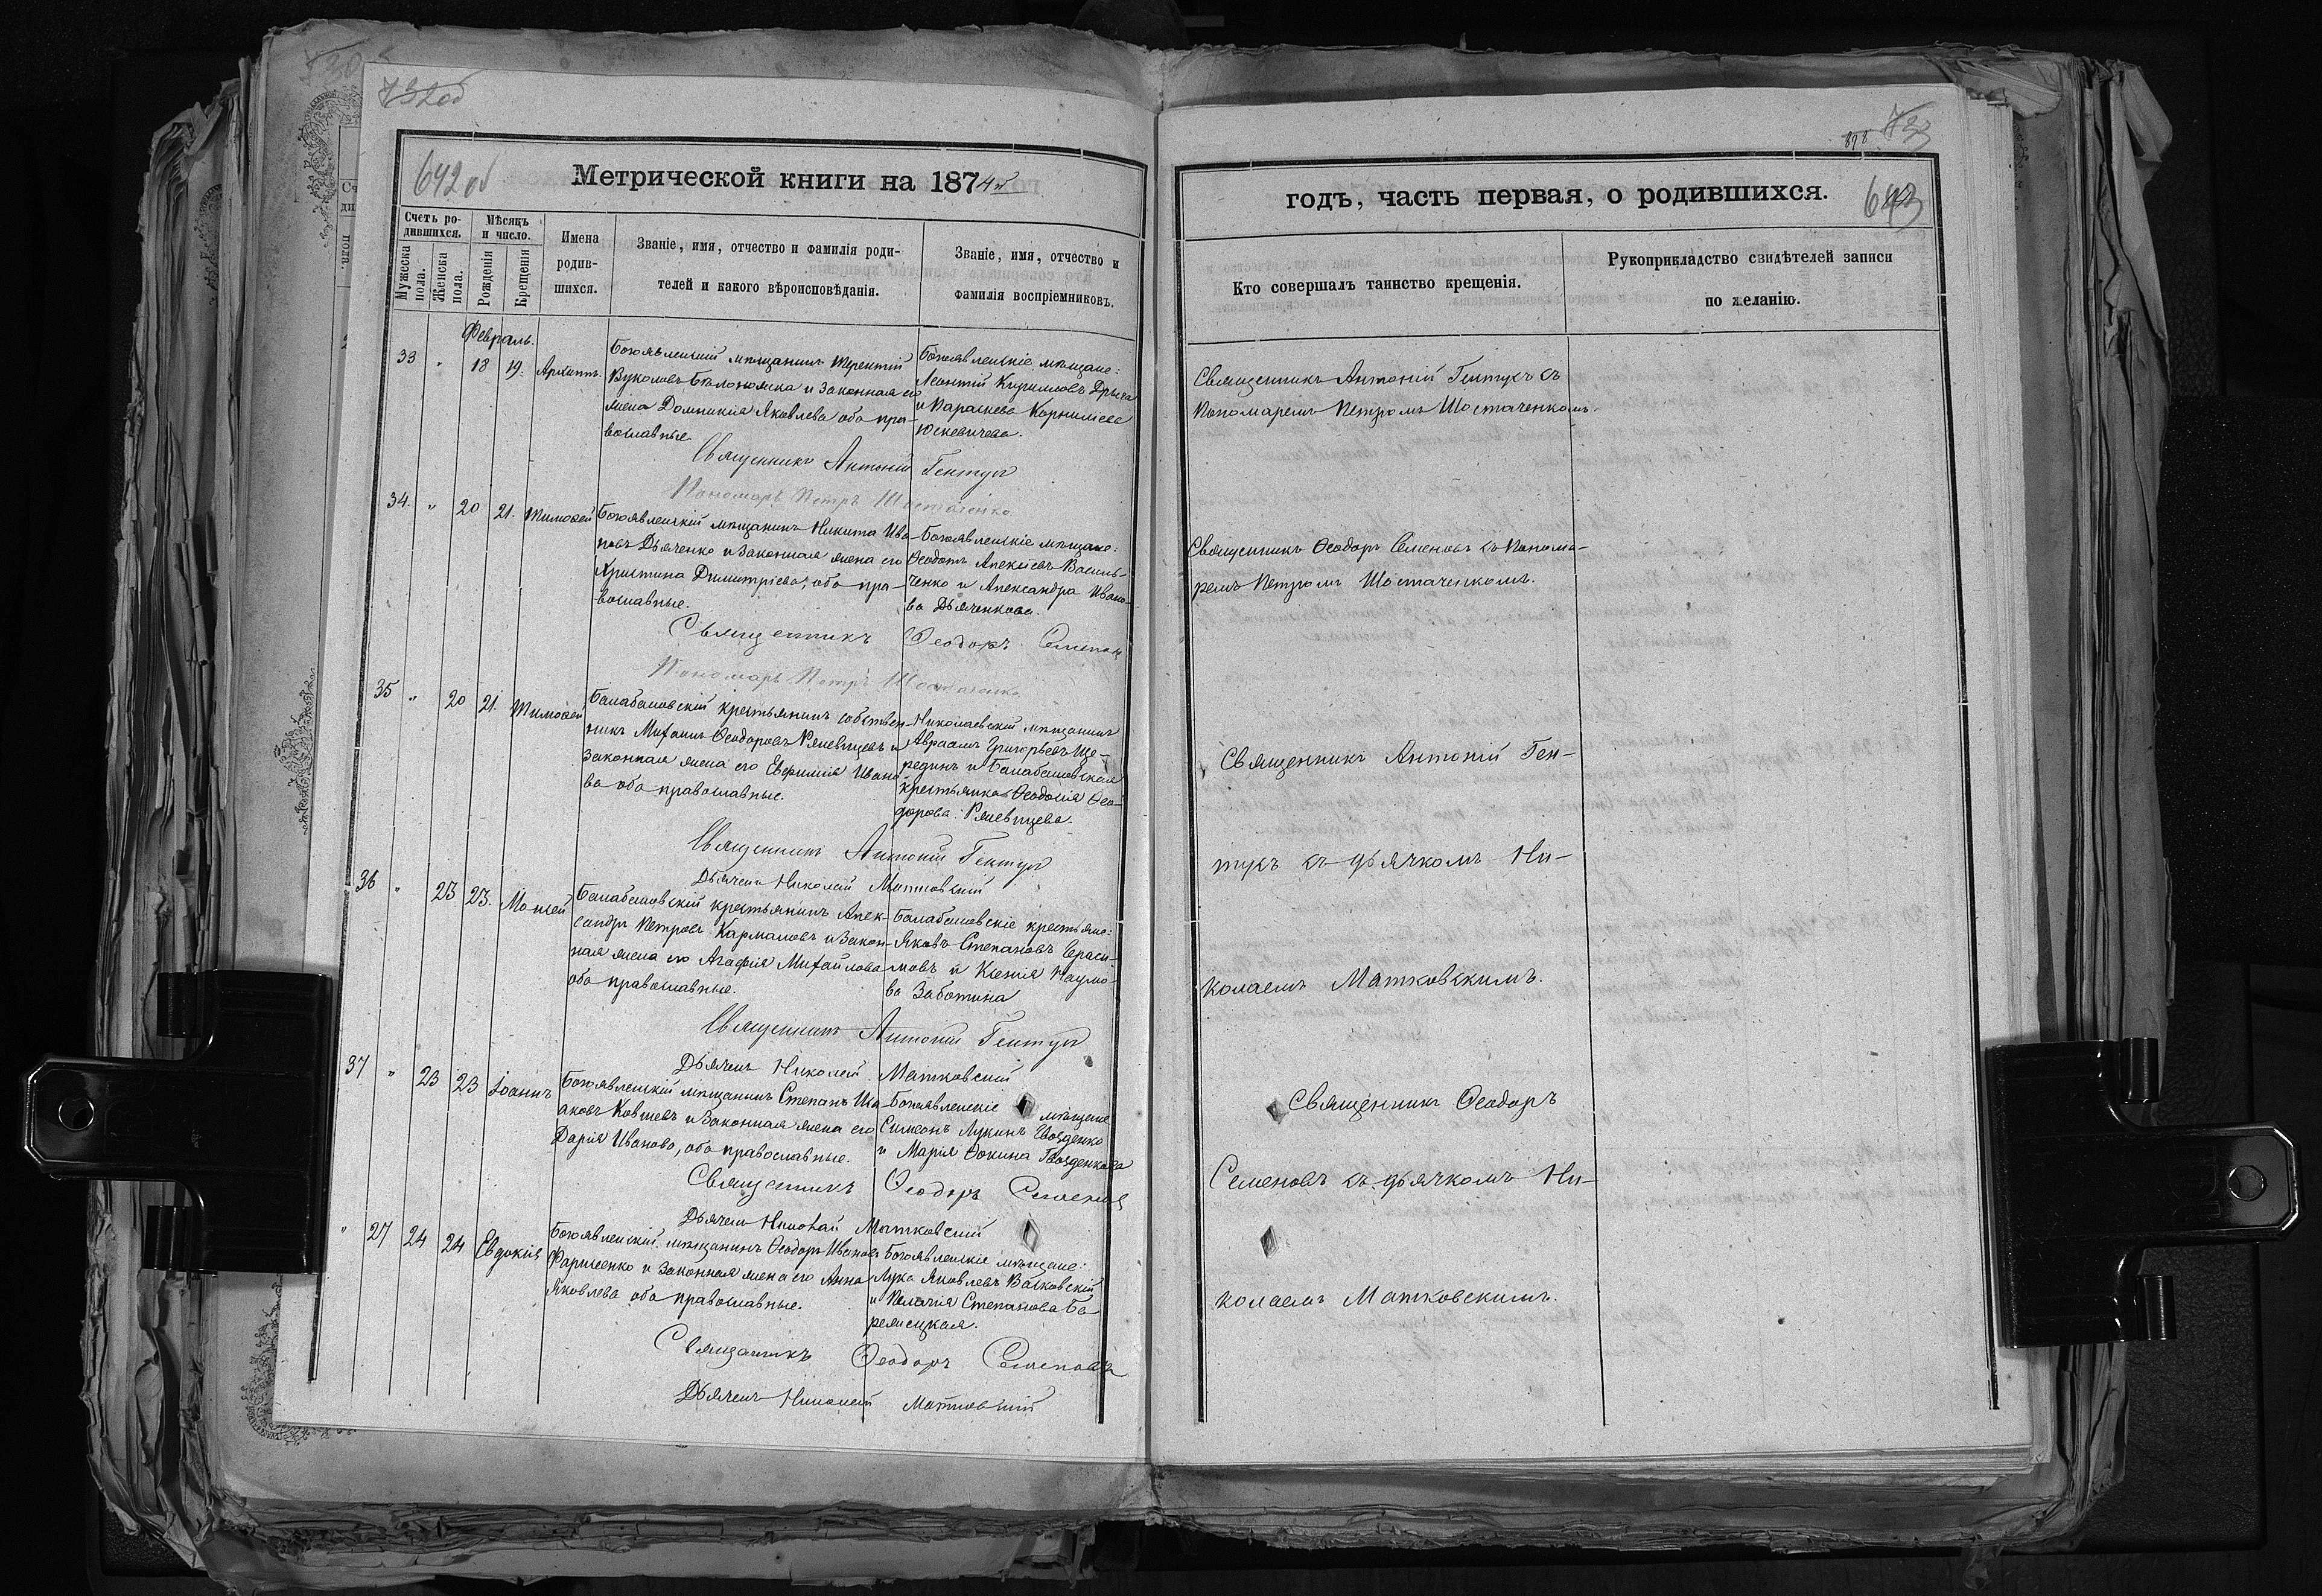 732об
642 об
Метрической книги на 1874й
Счетъ родившихся.
Мужеска пола.
Женска пола.
Мѣсяцъ и число.
Рожденія
Крещенія
Имена родившихся.
Званіе, имя, отчество и фамилія роди-
телей и какого вѣроисповѣданія.
Званіе, имя, отчество и
фамилія воспріемниковъ.
Февраль.
33 " 18 19. Архиппъ
Богоявленскій мѣщанинъ Терентій
Вуколовъ Бѣлоножка и законная его
жена Домникія Яковлева оба пра-
вославные.
Богоявленскіе мѣщане:
Леонтій Кириловъ
и Параскева Корнилиева
Юскевичева.
Священникъ Антоній Гентукъ
Пономарь Петръ Шостаченко
34. " 20 21. Тимофей
Богоявленскій мѣщанинъ Никита Ива-
новъ Дьяченко и законная жена его
Христина Димитріева, оба пра-
вославные.
Богоявленскіе мѣщане:
Ѳеодотъ Алексѣевъ Василь-
ченко и Александра Ивано-
ва Дьяченкова.
Священникъ Ѳеодоръ Семеновъ
Пономарь Петръ Шостаченко
35 " 20 21. Тимофей
Балабановскій крестьянинъ собствен-
никъ Михаилъ Ѳеодоровъ Ржевцевъ и
законная жена его Евфимія Ивано-
ва оба православные.
Николаевскій мѣщанинъ
Авраамъ Григорьевъ Ще-
рединъ и Балабановская
крестьянка Ѳеодосія Ѳео-
дорова Ржевцева.
Священникъ Антоній Гентукъ
Дьячекъ Николай Матковскій
36 " 23 23. Моисей
Балабановскій крестьянинъ Алек-
сандръ Петровъ Кармановъ и закон-
ная жена его Агафія Михайлова
оба православные.
Балабановскіе крестьяне:
Яковъ Степановъ Гераси-
мовъ и Ксенія Наумо-
ва Заботина
Священникъ Антоній Гентукъ
Дьячекъ Николай Матковскій
37 " 23 23 Іоаннъ
Богоявленскій мѣщанинъ Степанъ Иса-
аковъ Ковшевъ и законная жена его
Дарія Иванова, оба православные.
Богоявленскіе мѣщане
Симеонъ Лукинъ Гвозденко
и Марія Фокина Гвозденкова
Священникъ Ѳеодоръ Семеновъ
Дьячекъ Николай Матковскій
" 27 24 24 Евдокія
Богоявленскій мѣщанинъ Ѳеодоръ Ивановъ
и законная жена его Анна
Яковлева оба православные.
Богоявленскіе мѣщане:
Лука Яковлевъ
и Пелагія Степанова
Священникъ Ѳеодоръ Семеновъ
Дьячекъ Николай Матковскій
898
733
643
годъ, часть первая, о родившихся.
Кто совершалъ таинство крещенія.
Рукоприкладство свидѣтелей записи
по желанію.
Священникъ Антоній Гентукъ съ
Пономаремъ Петромъ Шостаченкомъ.
Священникъ Ѳеодоръ Семеновъ съ Понома-
ремъ Петромъ Шостаченкомъ.
Священникъ Антоній Ген-
тукъ съ дьячкомъ Ни-
колаемъ Матковскимъ.
Священникъ Ѳеодоръ
Семеновъ съ дьячкомъ Ни-
колаемъ Матковскимъ.